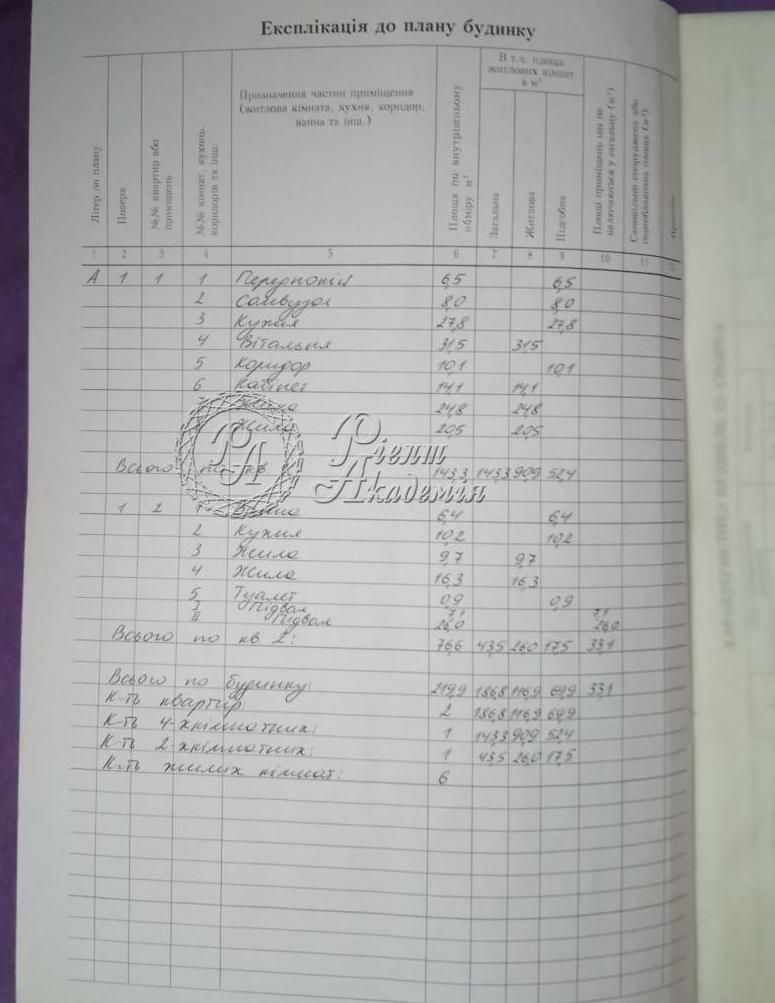 Експлікація до плану будинку
Літер по плану
Поверх
№№ квартир або приміщень
№№ кімнат, кухонь, коридорів та інш.
Призначення частин приміщення
(житлова кімната, кухня, коридор,
ванна та інш.)
Площа по внутрішньому обміру м²
В т.ч. площа
житлових кімнат
в м²
Загальна
Житлова
Підсобна
Площі приміщень що не включаються у загальну (м²)
Самовільно споруджена або переобладнана площа (м²)
1 2 3 4 5 6 7 8 9 10 11
А 1 1 1 Передпокій 6,5 6,5
2 Санвузол 8,0 8,0
3 Кухня 27,8 27,8
4 Вітальня 31,5 31,5
5 Коридор 10,1 10,1
6 Кабінет 14,1 14,1
24,8 24,8
Жила 20,5 20,5
Рієлт
Академія
РА
Всього по 143,3 143,3 90,9 52,4
1 2 6,4 6,4
2 Кухня 10,2 10,2
3 Жила 9,7 9,7
4 Жила 16,3 16,3
5 Туалет 0,9 0,9
I Підвал 7,1 7,1
II Підвал 26,0 26,0
Всього по кв 2: 76,6 43,5 26,0 17,5 33,1
Всього по будинку: 219,9 186,8 116,9 69,9 33,1
К-ть квартир: 2 186,8 116,9 69,9
К-ть 4-хкімнатних: 1 143,3 90,9 52,4
К-ть 2-хкімнатних: 1 43,5 26,0 17,5
К-ть жилих кімнат: 6